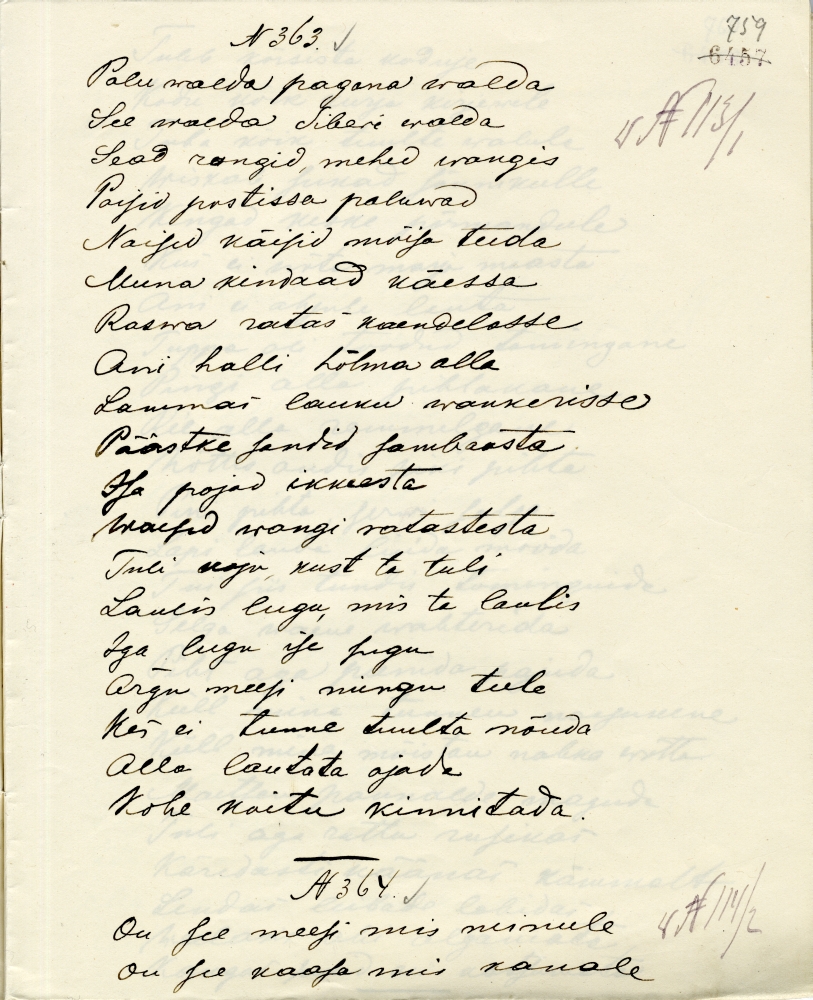 N 363. ✓
759
6457
Palu walda pagana walda
See walda Siberi walda
w N 113/1
Sead rongid, mehed wangis
Poisid postissa paluwad
Naised käisid mõisa teeda
Muna kindaad käessa
Raswa ratas kaendelasse
Ani halli hõlma alla
Lammas lauku wankerisse
Päästke sandid sambaasta
Isa pojad ikkeesta
Waesed wangi ratastesta
Tuli kust ta tuli
Laulis lugu, mis ta laulis
Iga lugu ise sugu
Ärgu meesi mingu teele
Kes ei tunne tuulta nõuda
Alla lautata ajada
Kohe koitu kinnitada.
N 364. ✓
w N 114/2
On see meesi mis minule
On see kaasa mis kanale